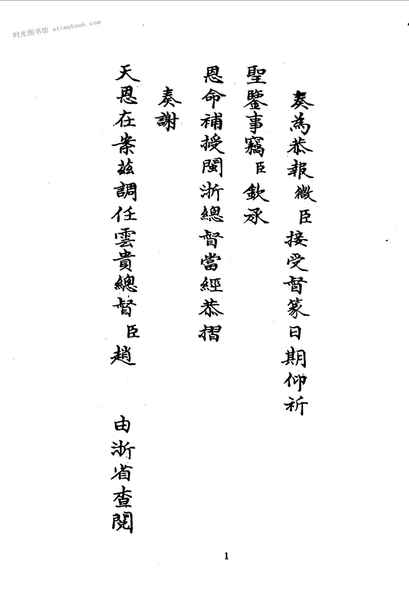 时光图书馆 etimebook.com
奏為恭報微臣接受督篆日期仰祈
聖鑒事竊臣欽承
恩命補授閩浙總督當經恭摺
奏謝
天恩在案茲調任雲貴總督臣趙 由浙省查閱
1